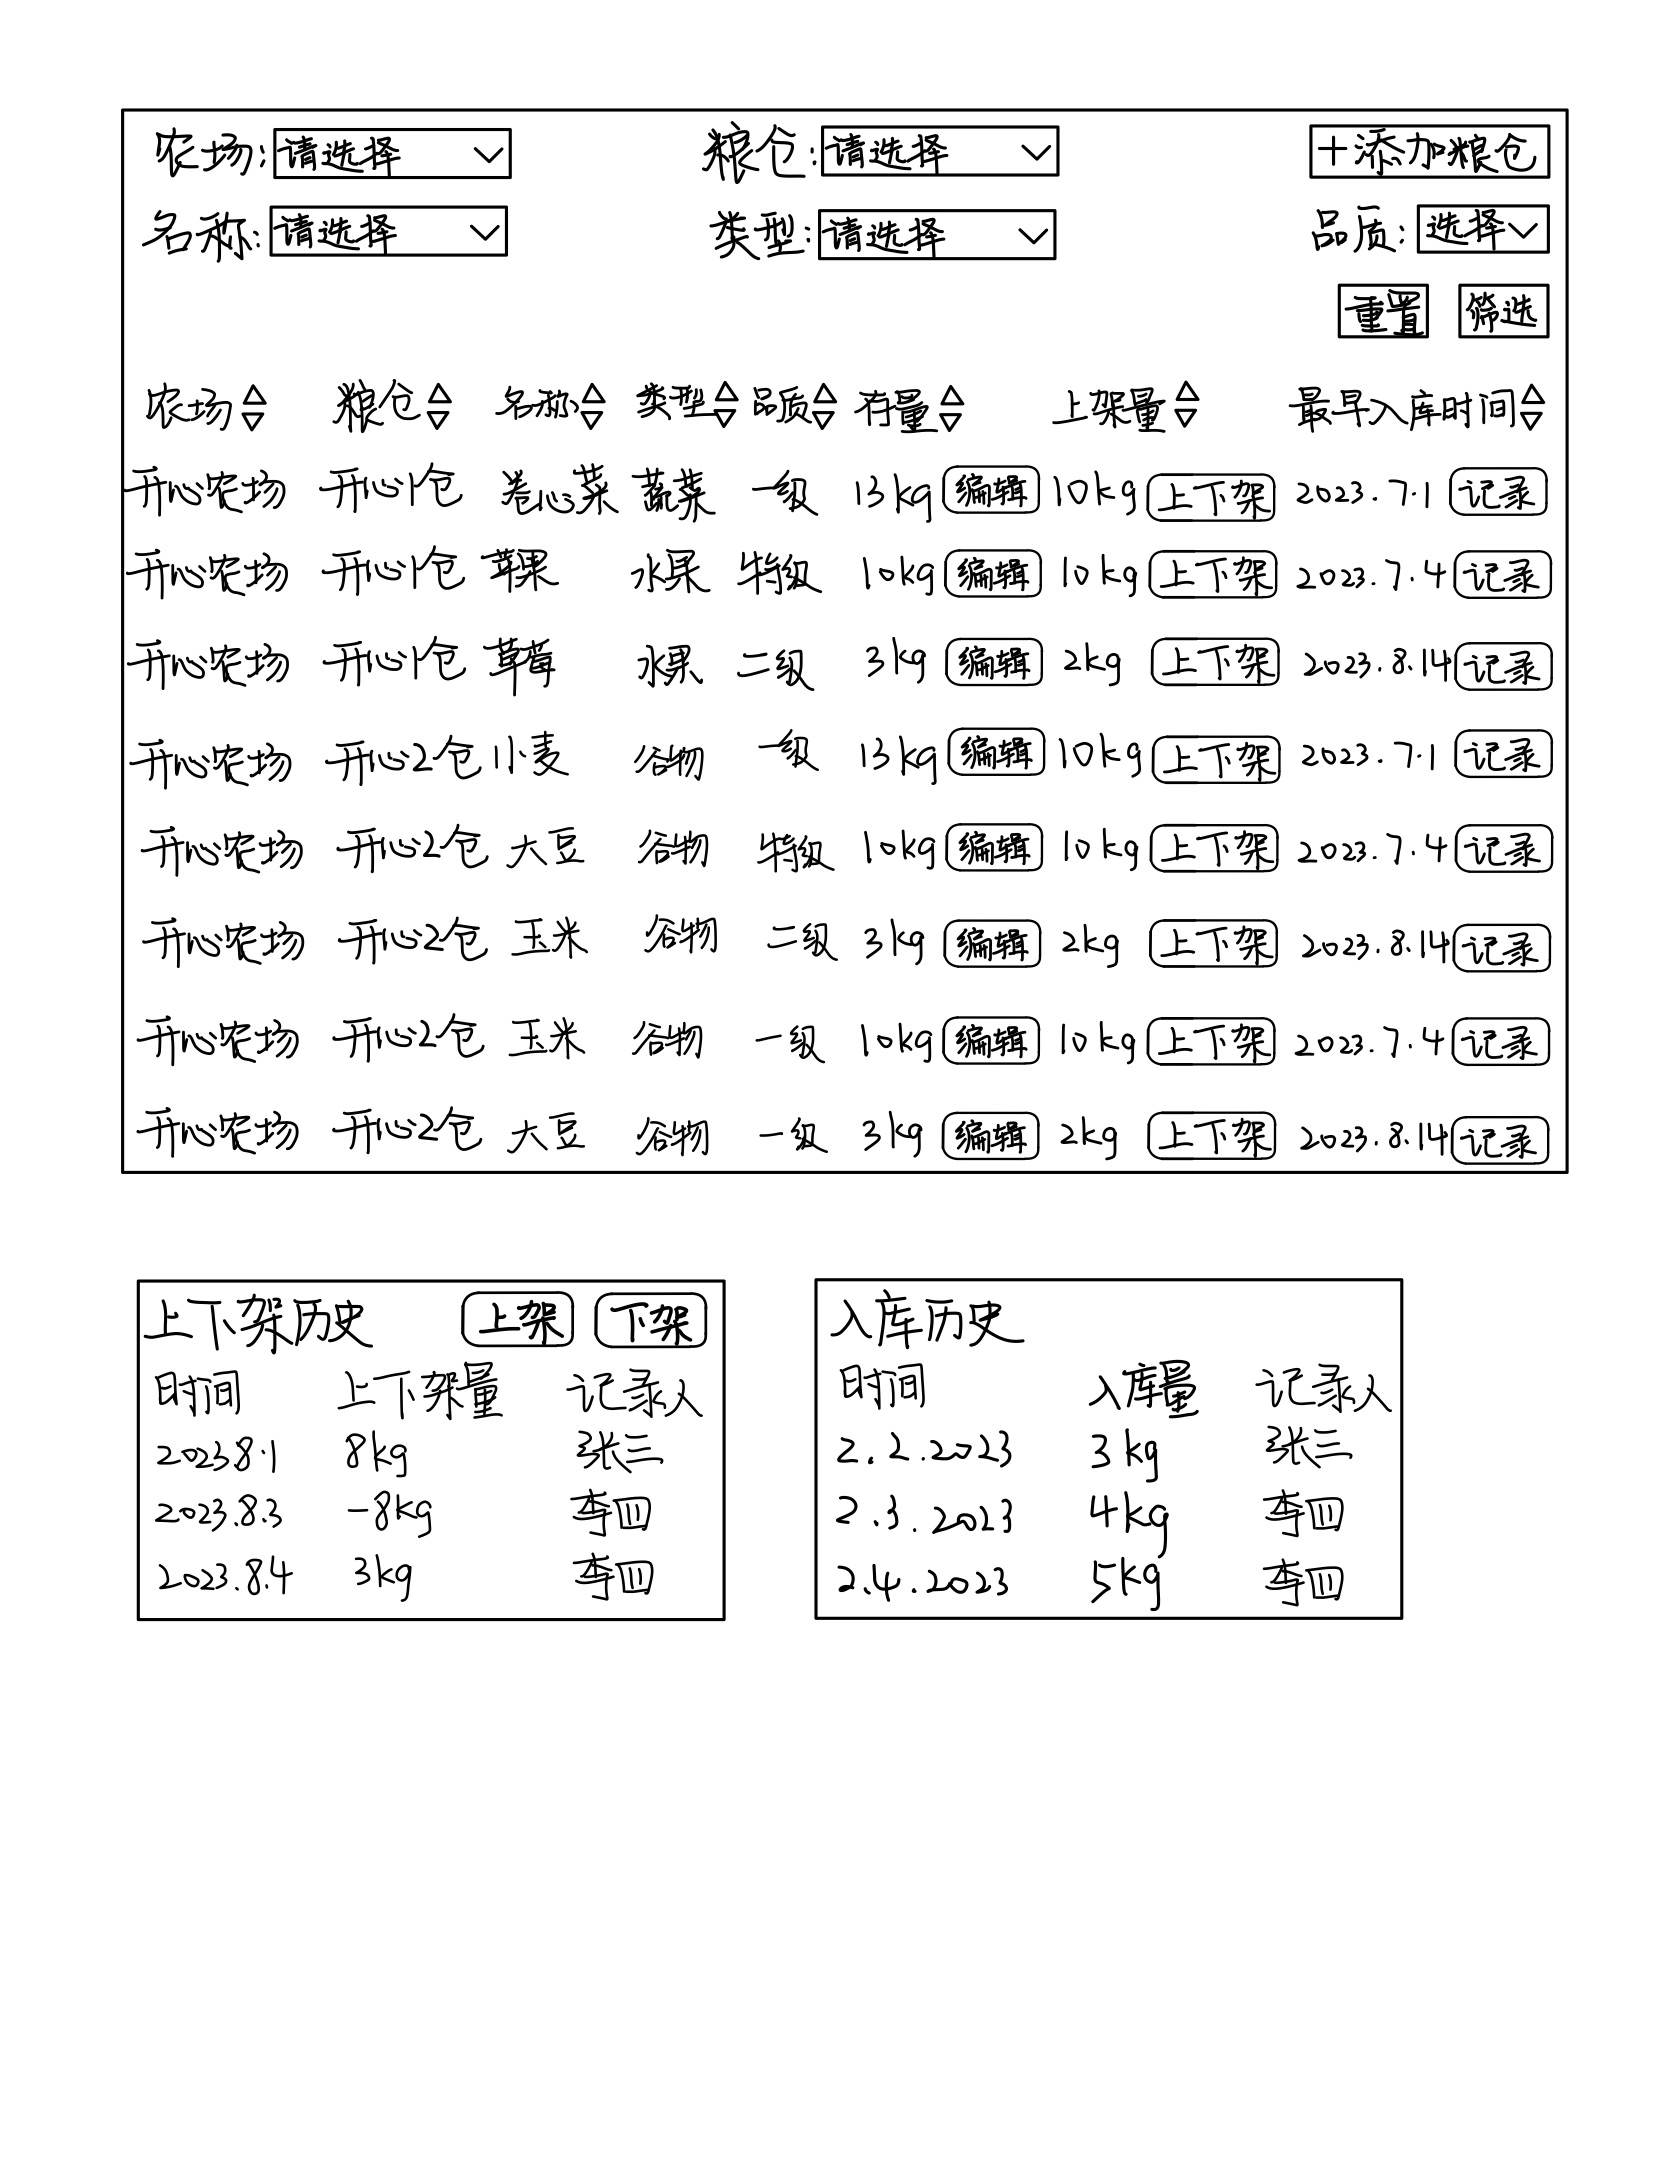 农场: 请选择 粮仓: 请选择 +添加粮仓
名称: 请选择 类型: 请选择 品质: 选择
重置 筛选
农场 粮仓 名称 类型 品质 存量 上架量 最早入库时间
开心农场 开心1仓 卷心菜 蔬菜 一级 13kg 编辑 10kg 上下架 2023.7.1 记录
开心农场 开心1仓 苹果 水果 特级 10kg 编辑 10kg 上下架 2023.7.4 记录
开心农场 开心1仓 草莓 水果 二级 3kg 编辑 2kg 上下架 2023.8.14 记录
开心农场 开心2仓 小麦 谷物 一级 13kg 编辑 10kg 上下架 2023.7.1 记录
开心农场 开心2仓 大豆 谷物 特级 10kg 编辑 10kg 上下架 2023.7.4 记录
开心农场 开心2仓 玉米 谷物 二级 3kg 编辑 2kg 上下架 2023.8.14 记录
开心农场 开心2仓 玉米 谷物 一级 10kg 编辑 10kg 上下架 2023.7.4 记录
开心农场 开心2仓 大豆 谷物 一级 3kg 编辑 2kg 上下架 2023.8.14 记录
上下架历史 上架 下架
时间 上下架量 记录人
2023.8.1 8kg 张三
2023.8.3 -8kg 李四
2023.8.4 3kg 李四
入库历史
时间 入库量 记录人
2.2.2023 3kg 张三
2.3.2023 4kg 李四
2.4.2023 5kg 李四